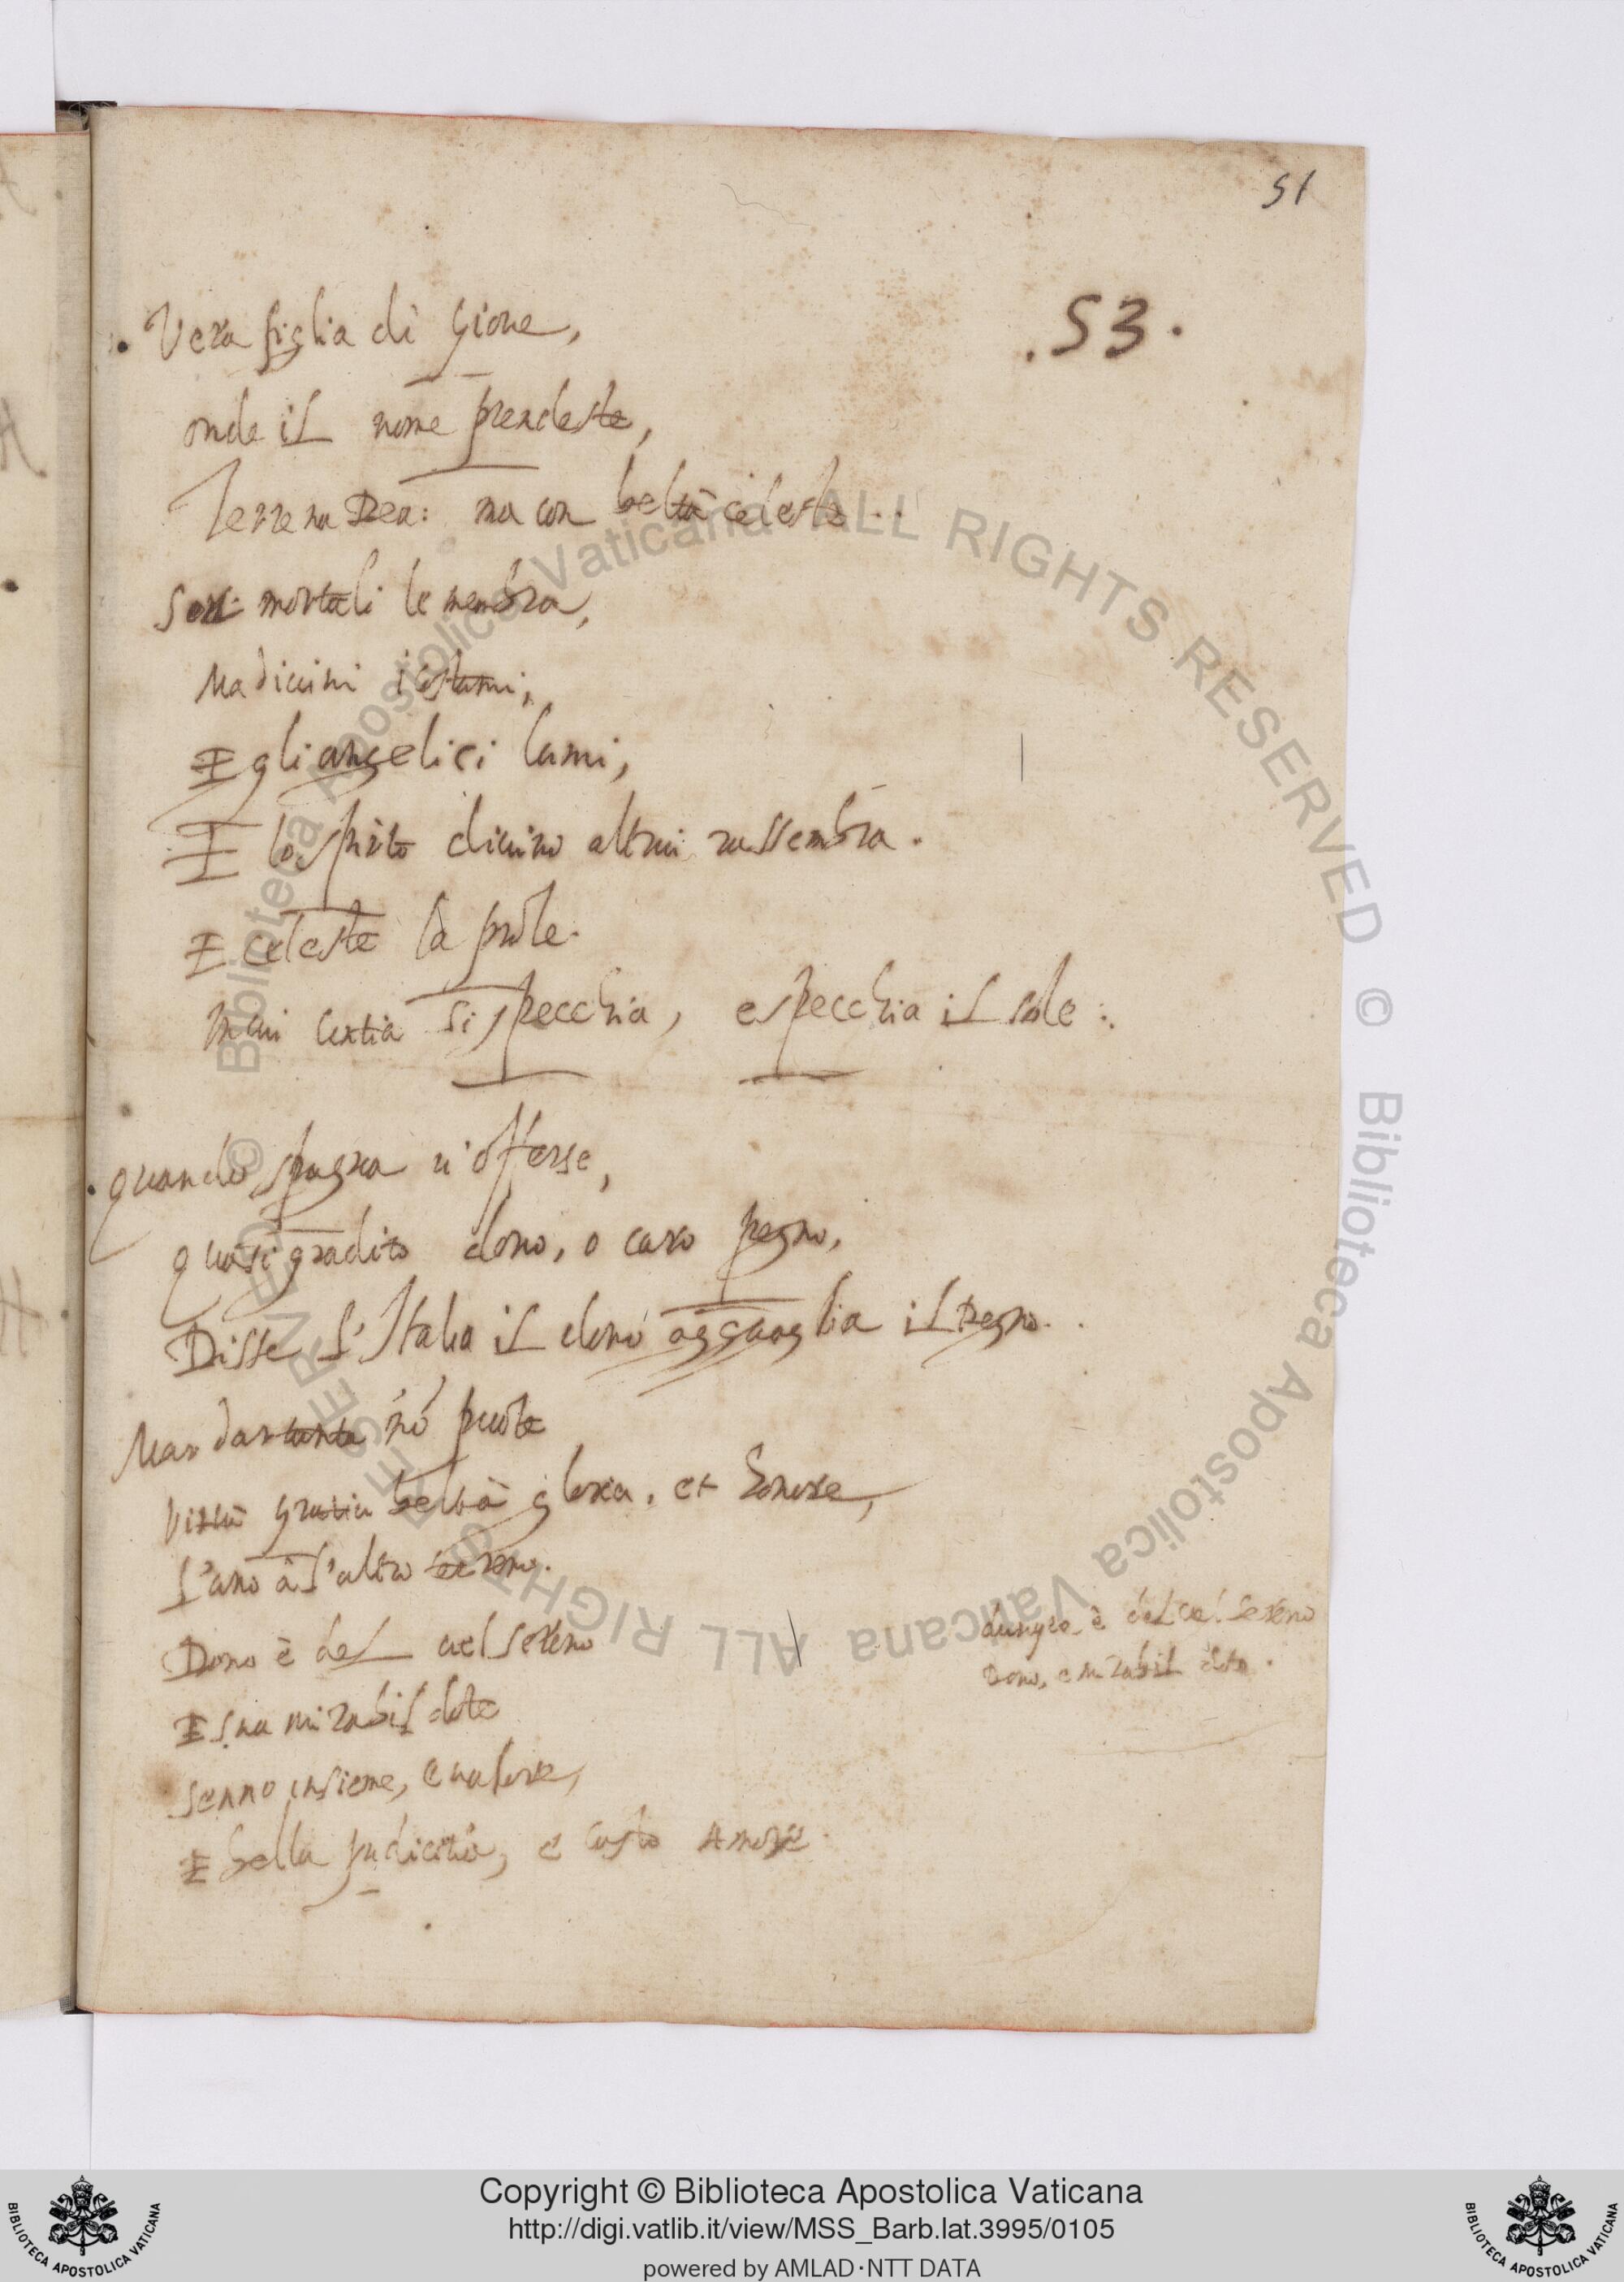 51
.53.
Vera figlia di Gioue,
onde il nome prendeste,
Terrena Dea: ma con beltà celeste..
Son mortali le membra,
Ma diuini i costumi,
E gli angelici lumi,
E lo spirto diuino altrui rassembra.
E celeste la prole.
In cui si specchia, e specchia il sole:.
Quando Spagna u'offerse,
quasi gradito dono, o caro pegno,
Disse l'Italia il dono agguaglia il Regno..
Ma dar tanta nō puote
Virtù gratia beltà gloria, et honore,
L'uno à l'altro terreno.
Dono è del ciel sereno
dunque è del ciel sereno
Dono, e mirabil dote.
E sua mirabil dote
Senno insieme, e ualore,
E bella pudicitia, e casto Amore
© Biblioteca Apostolica Vaticana ALL RIGHTS RESERVED © Biblioteca Apostolica Vaticana ALL RIGHTS RESERVED
Copyright © Biblioteca Apostolica Vaticana
http://digi.vatlib.it/view/MSS_Barb.lat.3995/0105
powered by AMLAD·NTT DATA
BIBLIOTECA APOSTOLICA VATICANA
BIBLIOTECA APOSTOLICA VATICANA